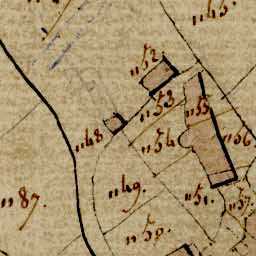 1145.
1152.
1153.
1155
1148
1154.
1156.
1187.
1149.
1151.
1157.
1150.